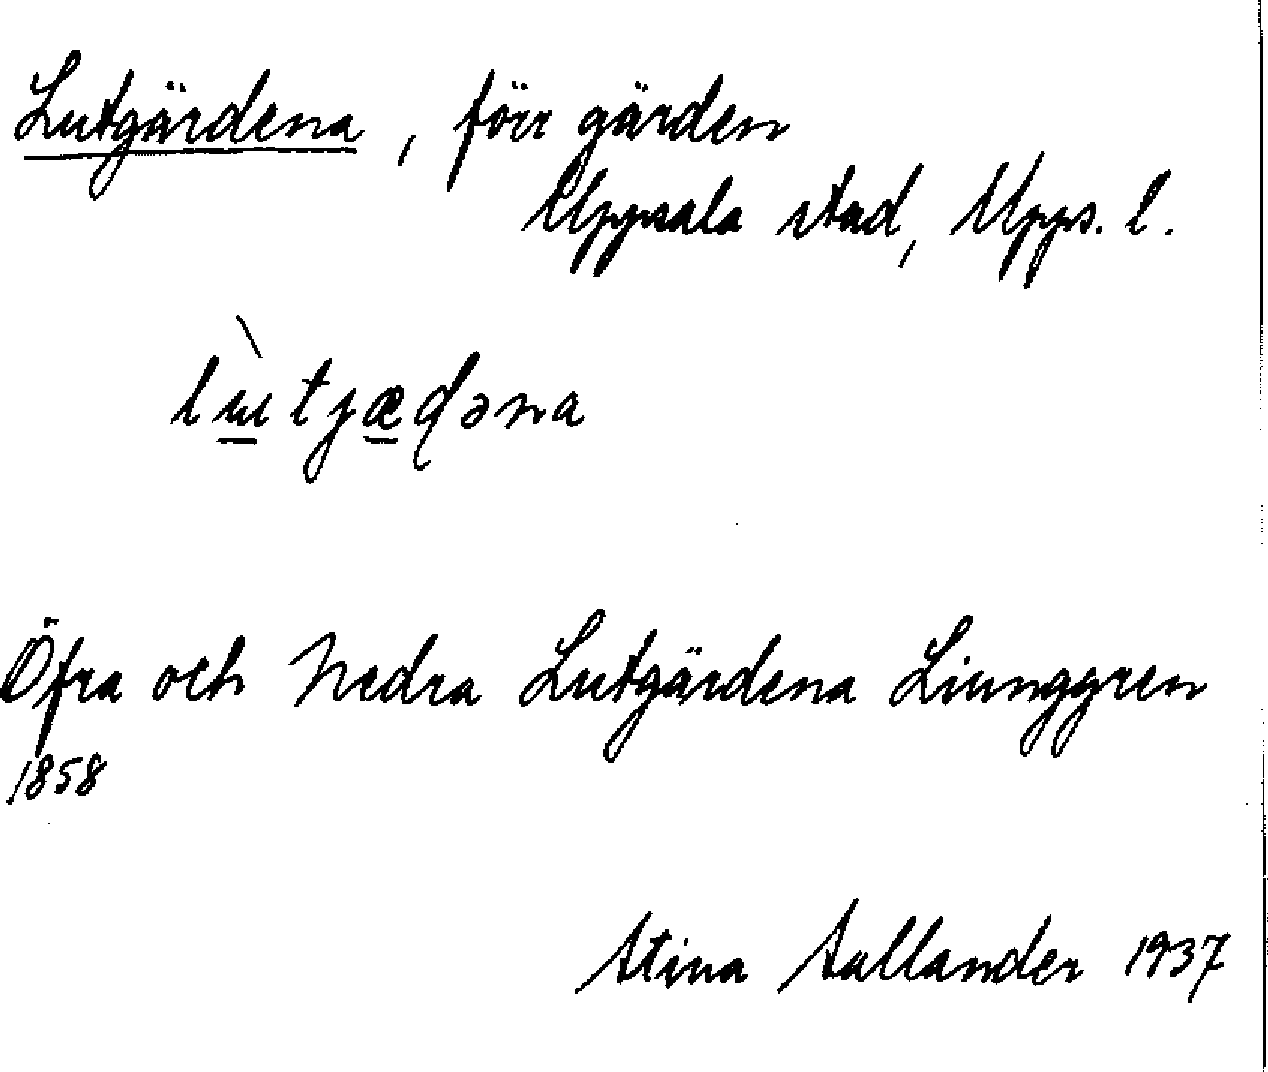 Lutgärdena, förr gärden
Uppsala stad, Upps. l.
lɯ̀tjæḍəna
Öfra och Nedra Lutgärdena Liunggren
1858
Stina Sallander 1937